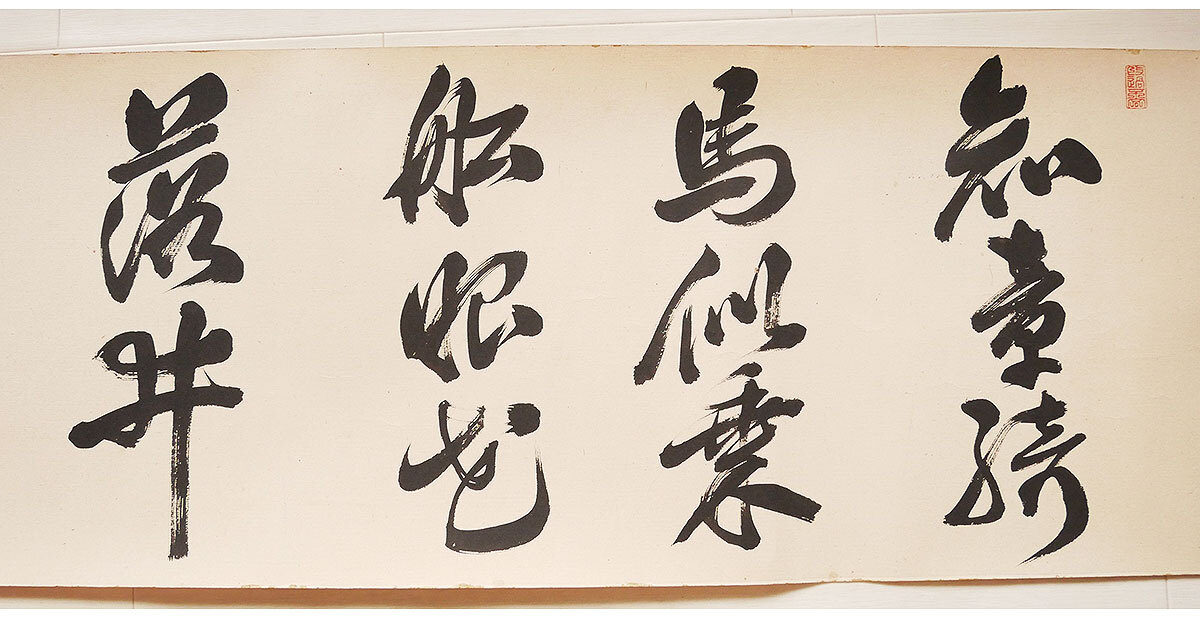 知章騎
馬似乗
船眼花
落井